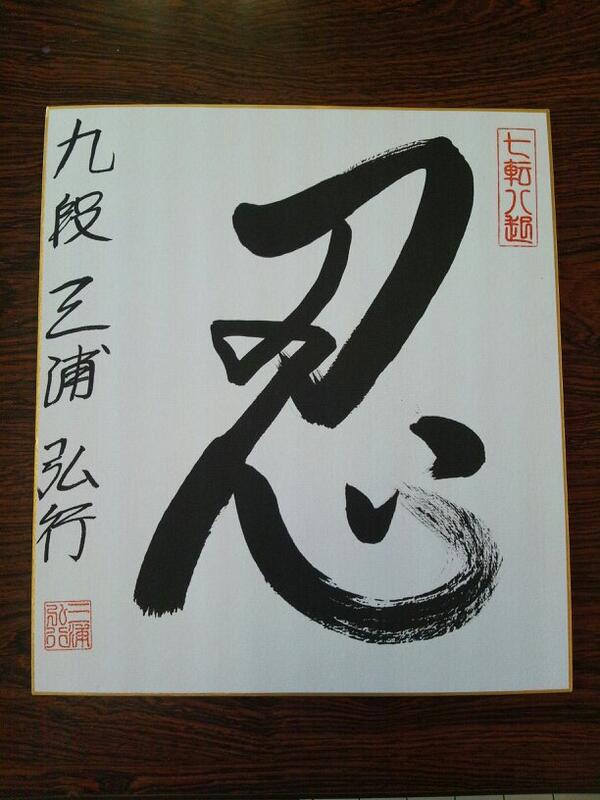 七転八起
忍
九段 三浦 弘行
三浦
弘行